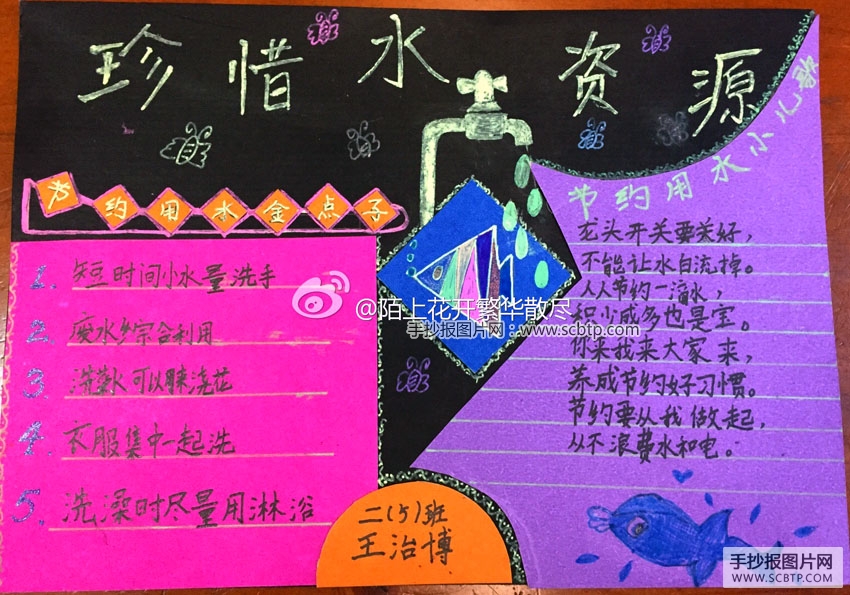 珍惜水资源
节约用水金点子
1. 短时间小水量洗手
2. 废水综合利用
3. 洗菜水可以用来浇花
4. 衣服集中一起洗
5. 洗澡时尽量用淋浴
节约用水小儿歌
龙头开关要关好，
不能让水白流掉。
人人节约一滴水，
积少成多也是宝。
你来我来大家来，
养成节约好习惯。
节约要从我做起，
从不浪费水和电。
二(5)班
王治博
@陌上花开繁华散尽
手抄报图片网：www.scbtp.com
手抄报图片网
WWW.SCBTP.COM